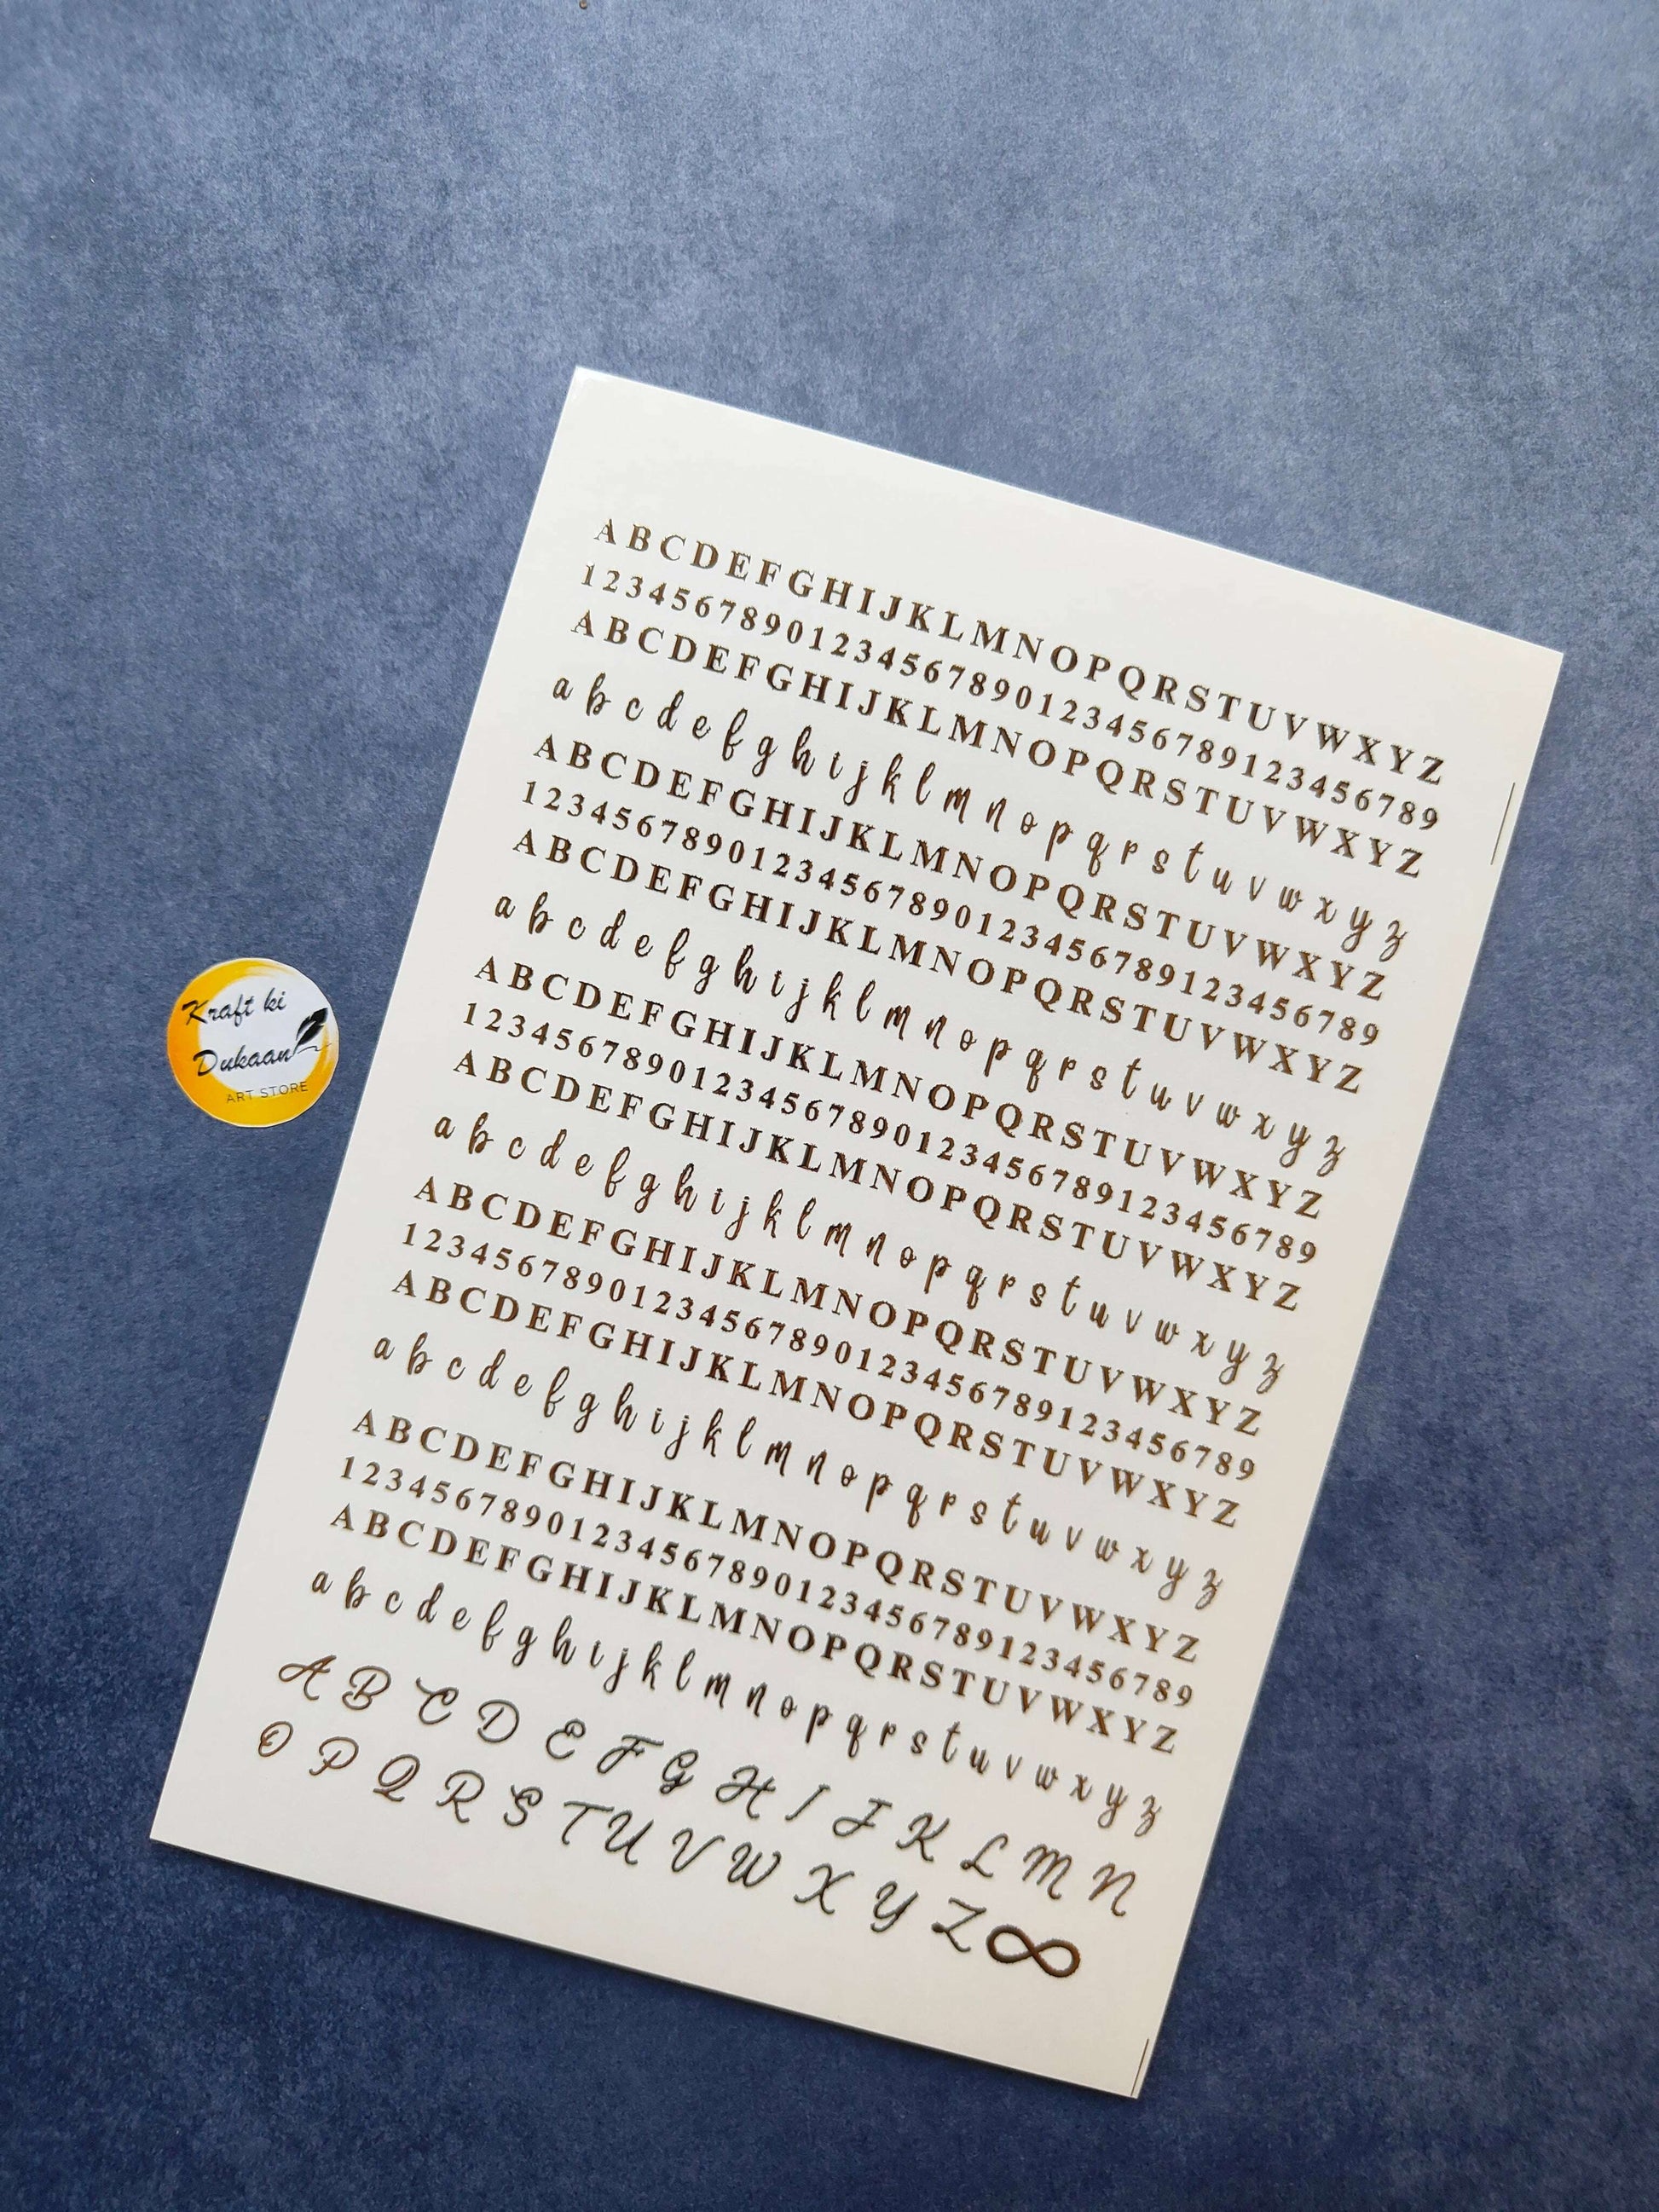 Kraft ki
Dukaan
ART STORE
A B C D E F G H I J K L M N O P Q R S T U V W X Y Z
1 2 3 4 5 6 7 8 9 0 1 2 3 4 5 6 7 8 9 0 1 2 3 4 5 6 7 8 9 1 2 3 4 5 6 7 8 9
A B C D E F G H I J K L M N O P Q R S T U V W X Y Z
a b c d e f g h i j k l m n o p q r s t u v w x y z
A B C D E F G H I J K L M N O P Q R S T U V W X Y Z
1 2 3 4 5 6 7 8 9 0 1 2 3 4 5 6 7 8 9 0 1 2 3 4 5 6 7 8 9 1 2 3 4 5 6 7 8 9
A B C D E F G H I J K L M N O P Q R S T U V W X Y Z
a b c d e f g h i j k l m n o p q r s t u v w x y z
A B C D E F G H I J K L M N O P Q R S T U V W X Y Z
1 2 3 4 5 6 7 8 9 0 1 2 3 4 5 6 7 8 9 0 1 2 3 4 5 6 7 8 9 1 2 3 4 5 6 7 8 9
A B C D E F G H I J K L M N O P Q R S T U V W X Y Z
a b c d e f g h i j k l m n o p q r s t u v w x y z
A B C D E F G H I J K L M N O P Q R S T U V W X Y Z
1 2 3 4 5 6 7 8 9 0 1 2 3 4 5 6 7 8 9 0 1 2 3 4 5 6 7 8 9 1 2 3 4 5 6 7 8 9
A B C D E F G H I J K L M N O P Q R S T U V W X Y Z
a b c d e f g h i j k l m n o p q r s t u v w x y z
A B C D E F G H I J K L M N O P Q R S T U V W X Y Z
1 2 3 4 5 6 7 8 9 0 1 2 3 4 5 6 7 8 9 0 1 2 3 4 5 6 7 8 9 1 2 3 4 5 6 7 8 9
A B C D E F G H I J K L M N O P Q R S T U V W X Y Z
a b c d e f g h i j k l m n o p q r s t u v w x y z
A B C D E F G H I J K L M N
O P Q R S T U V W X Y Z ∞